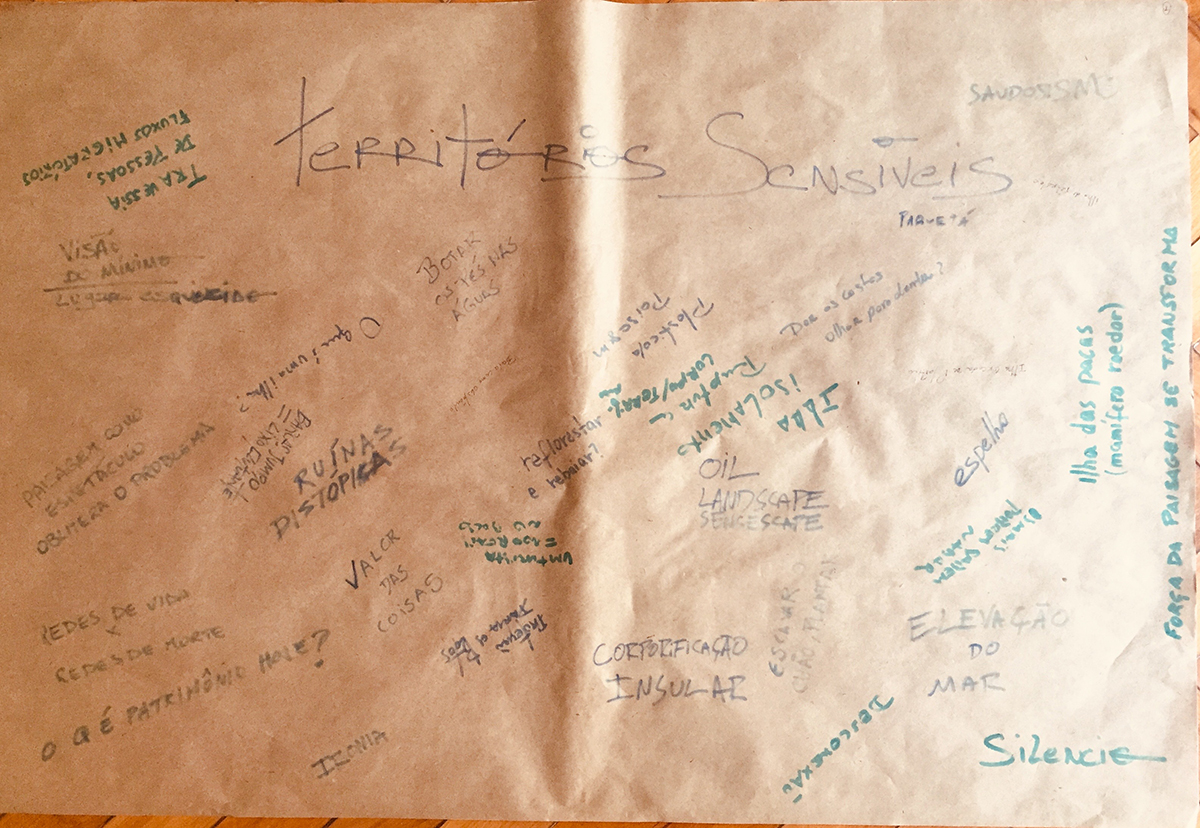 Territórios Sensíveis
PAQUETÁ
SAUDOSISMO
TRAVESSIA
DE PESSOAS,
FLUXOS MIGRATÓRIOS
VISÃO
DO MÍNIMO
LUGAR
BOTAR
OS PÉS NAS
ÁGUAS
Plasticola
Paisagem
Dar as costas
olhar para dentro?
O que é uma ilha?
ILHA
ISOLAMENTO
Ruptura
Reflorestar
e reboiar?
PAISAGEM COMO
ESPETÁCULO
OBLITERA O PROBLEMA
RUÍNAS
DISTÓPICAS
OIL
LANDSCAPE
SENSESCAPE
espelho
Ilha das pacas
(mamífero roedor)
FORÇA DA PAISAGEM SE TRANSFORMA
VALOR
DAS
COISAS
REDES DE VIDA
X
REDES DE MORTE
O Q É PATRIMÔNIO HOJE?
CORPORIFICAÇÃO
INSULAR
ESCAVAR O
CHÃO/PLANTAR
ELEVAÇÃO
DO
MAR
IRONIA
DESCONEXÃO
Silencio